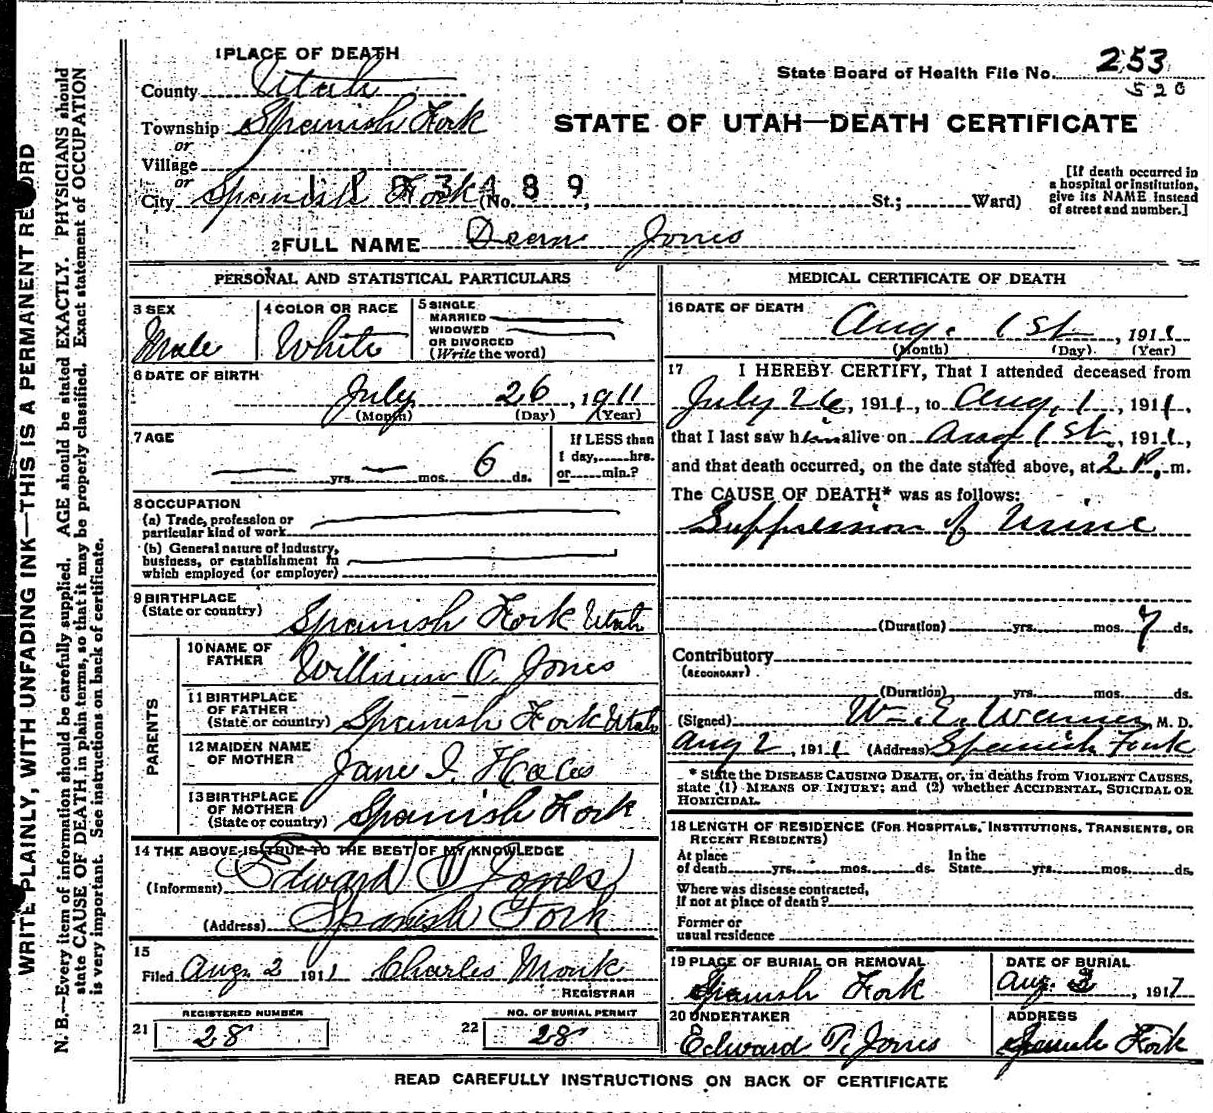 1 PLACE OF DEATH
County Utah
State Board of Health File No. 253
520
Township Spanish Fork
STATE OF UTAH—DEATH CERTIFICATE
or
Village
or
City Spanish Fork (No. St.; Ward)
[If death occurred in a hospital or institution, give its NAME instead of street and number.]
2 FULL NAME Jones
PERSONAL AND STATISTICAL PARTICULARS
3 SEX
Male
4 COLOR OR RACE
White
5 SINGLE
MARRIED
WIDOWED
OR DIVORCED
(Write the word)
6 DATE OF BIRTH
July 26, 1911
(Month) (Day) (Year)
7 AGE
yrs. mos. 6 ds.
If LESS than
1 day, hrs.
or min.?
8 OCCUPATION
(a) Trade, profession or
particular kind of work
(b) General nature of industry,
business, or establishment in
which employed (or employer)
9 BIRTHPLACE
(State or country) Spanish Fork Utah
PARENTS
10 NAME OF
FATHER William O. Jones
11 BIRTHPLACE
OF FATHER
(State or country) Spanish Fork Utah
12 MAIDEN NAME
OF MOTHER Jane I. Hales
13 BIRTHPLACE
OF MOTHER
(State or country) Spanish Fork
14 THE ABOVE IS TRUE TO THE BEST OF MY KNOWLEDGE
(Informant) Edward Jones
(Address) Spanish Fork
15
Filed Aug 2 1911 Charles Monk
REGISTRAR
REGISTERED NUMBER
21 28
NO. OF BURIAL PERMIT
22 28
MEDICAL CERTIFICATE OF DEATH
16 DATE OF DEATH
Aug. 1st, 1911
(Month) (Day) (Year)
17 I HEREBY CERTIFY, That I attended deceased from
July 26, 1911, to Aug. 1, 1911,
that I last saw him alive on Aug 1st, 1911,
and that death occurred, on the date stated above, at 2 P. m.
The CAUSE OF DEATH* was as follows:
Suppression of Urine
(Duration) yrs. mos. 7 ds.
Contributory
(SECONDARY)
(Duration) yrs. mos. ds.
(Signed) Wm. E. Warner, M. D.
Aug 2, 1911 (Address) Spanish Fork
* State the DISEASE CAUSING DEATH, or, in deaths from VIOLENT CAUSES,
state (1) MEANS OF INJURY; and (2) whether ACCIDENTAL, SUICIDAL OR
HOMICIDAL.
18 LENGTH OF RESIDENCE (FOR HOSPITALS, INSTITUTIONS, TRANSIENTS, OR
RECENT RESIDENTS)
At place
of death yrs. mos. ds.
In the
State yrs. mos. ds.
Where was disease contracted,
if not at place of death?
Former or
usual residence
19 PLACE OF BURIAL OR REMOVAL
Spanish Fork
DATE OF BURIAL
Aug. 2, 1917
20 UNDERTAKER
Edward T. Jones
ADDRESS
Spanish Fork
READ CAREFULLY INSTRUCTIONS ON BACK OF CERTIFICATE
WRITE PLAINLY, WITH UNFADING INK—THIS IS A PERMANENT RECORD
N. B.—Every item of information should be carefully supplied. AGE should be stated EXACTLY. PHYSICIANS should
state CAUSE OF DEATH in plain terms, so that it may be properly classified. Exact statement of OCCUPATION
is very important. See instructions on back of certificate.